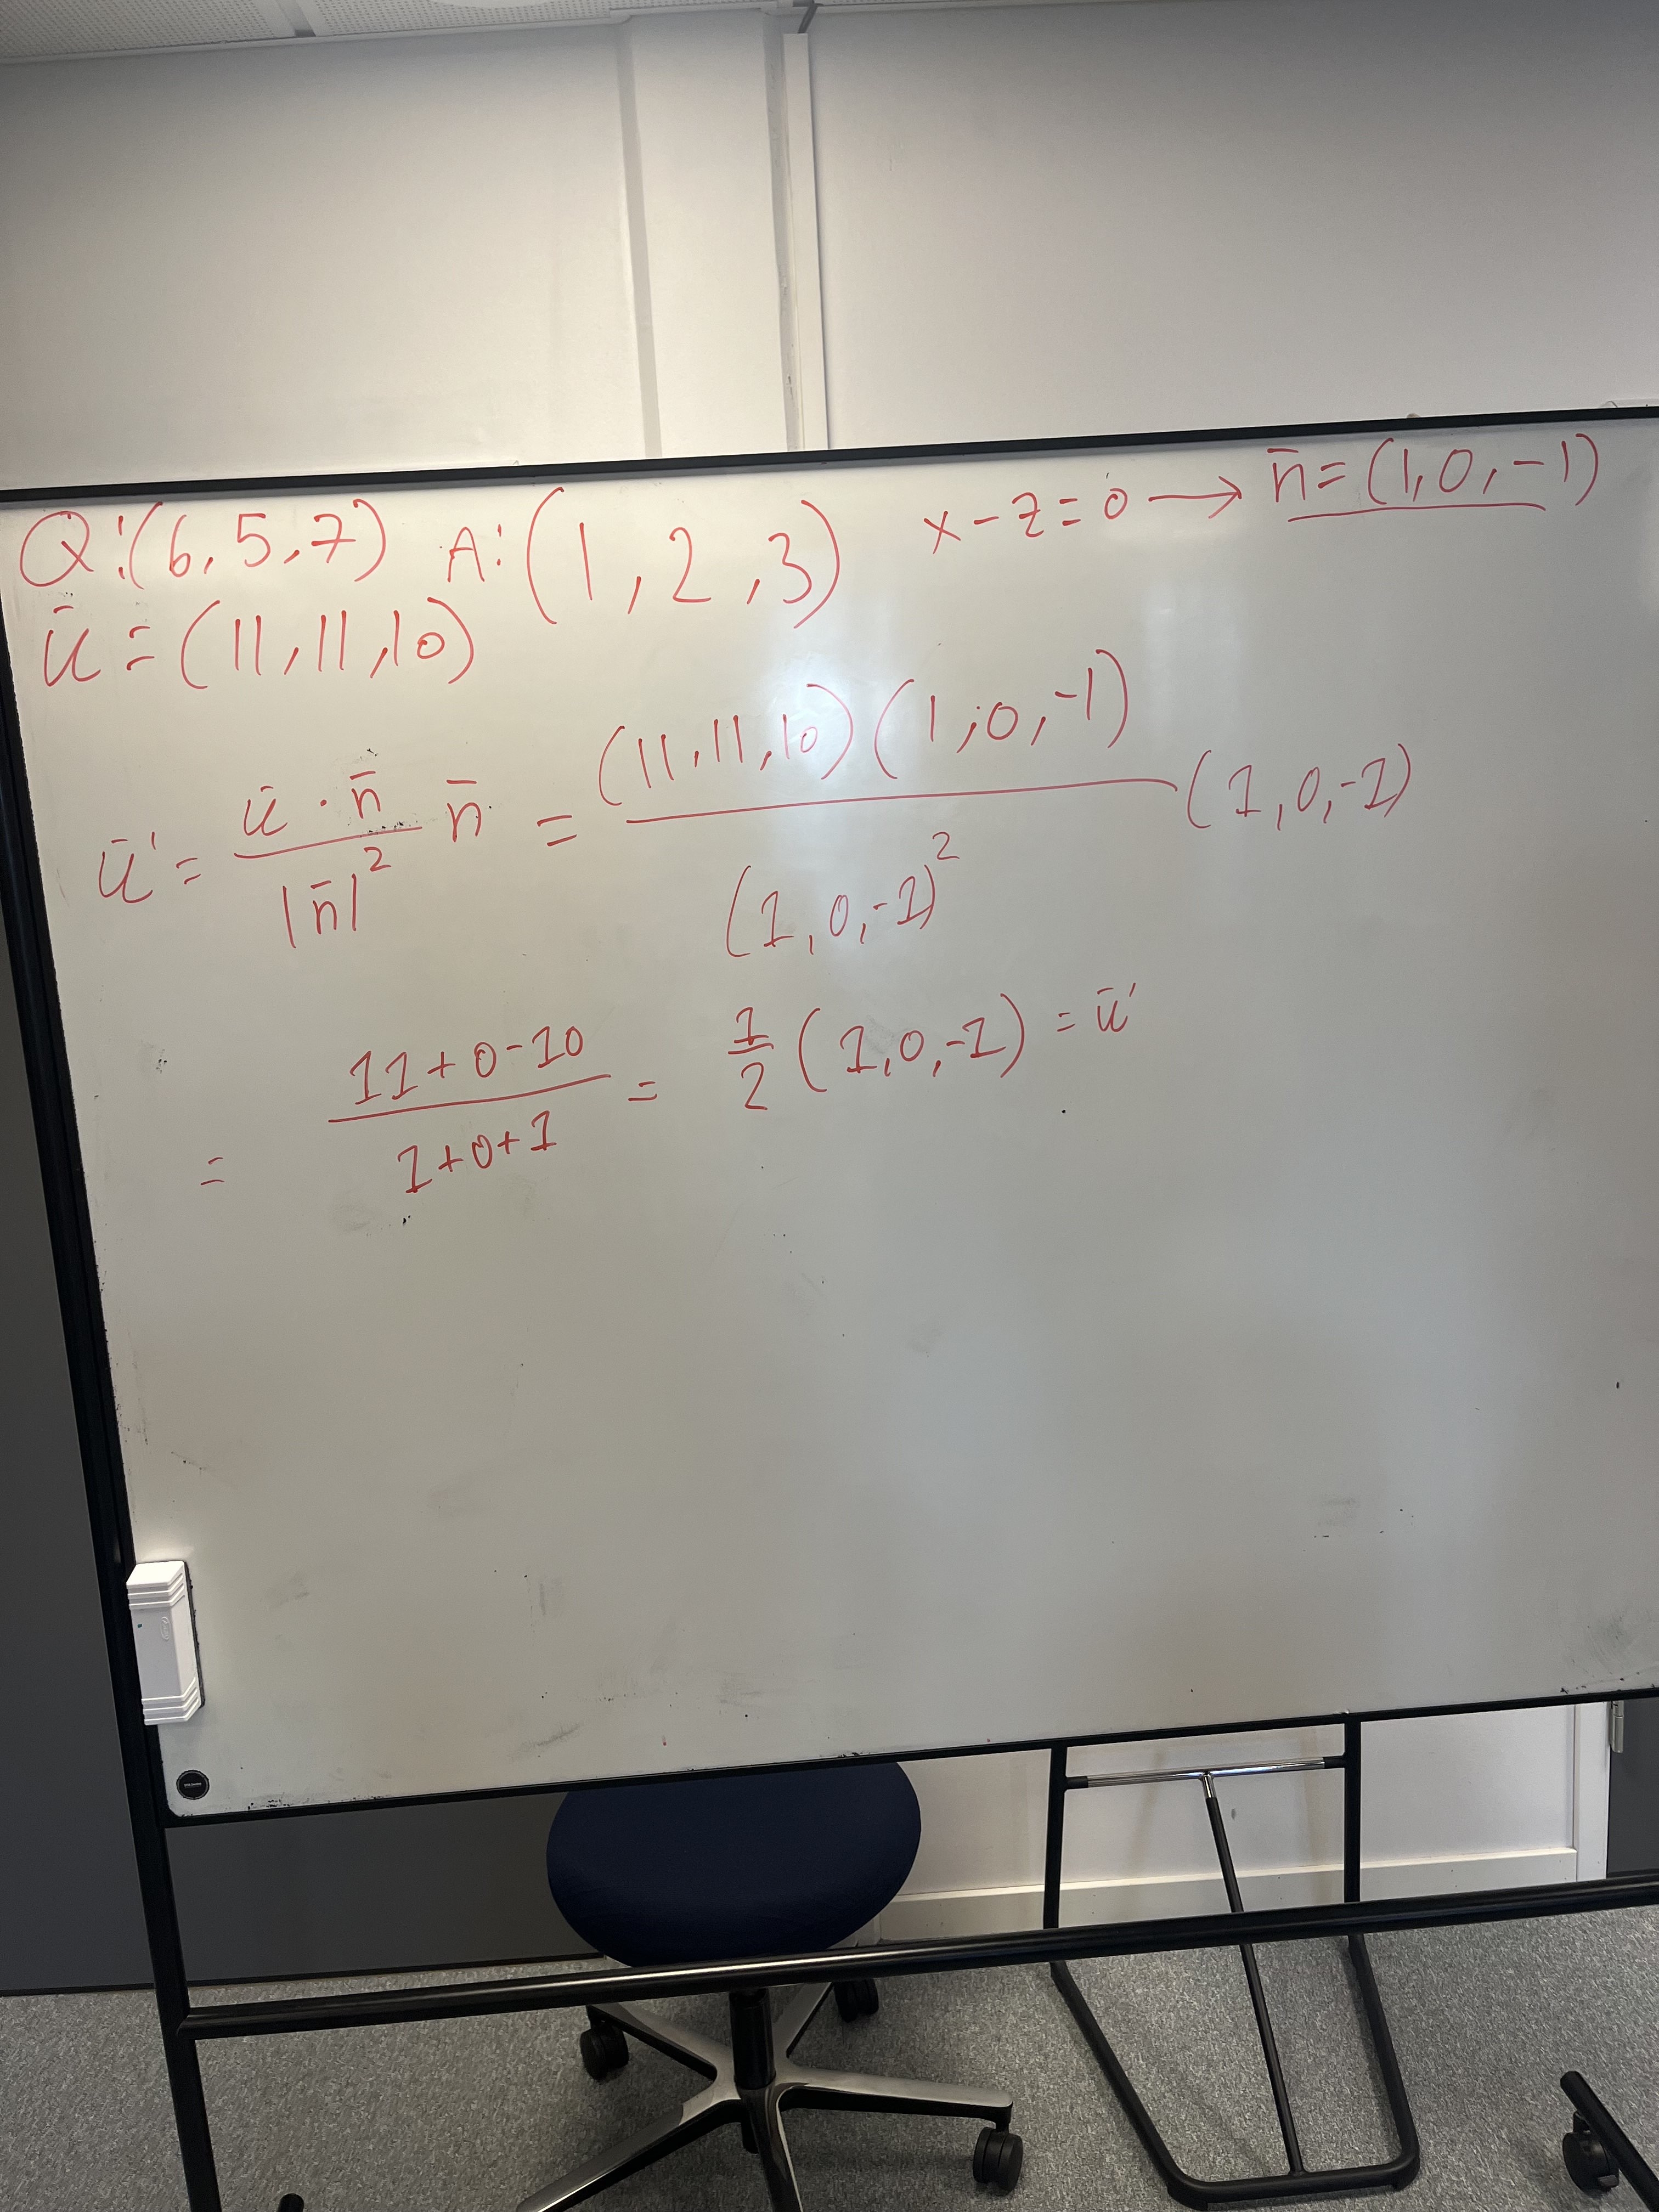 Q:(6,5,7) A:(1,2,3) x-z=0 → n̄=(1,0,-1)
ū=(11,11,10)
ū'= ū·n̄/|n̄|² n̄ = (11,11,10)(1,0,-1)/(1,0,-1)² (1,0,-1)
= 11+0-10/1+0+1 = 1/2 (1,0,-1) = ū'